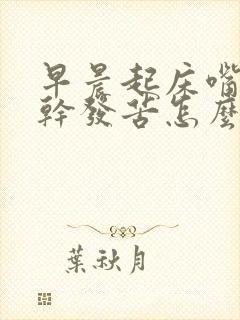 早晨起床嘴
幹發苦怎麼
葉秋月